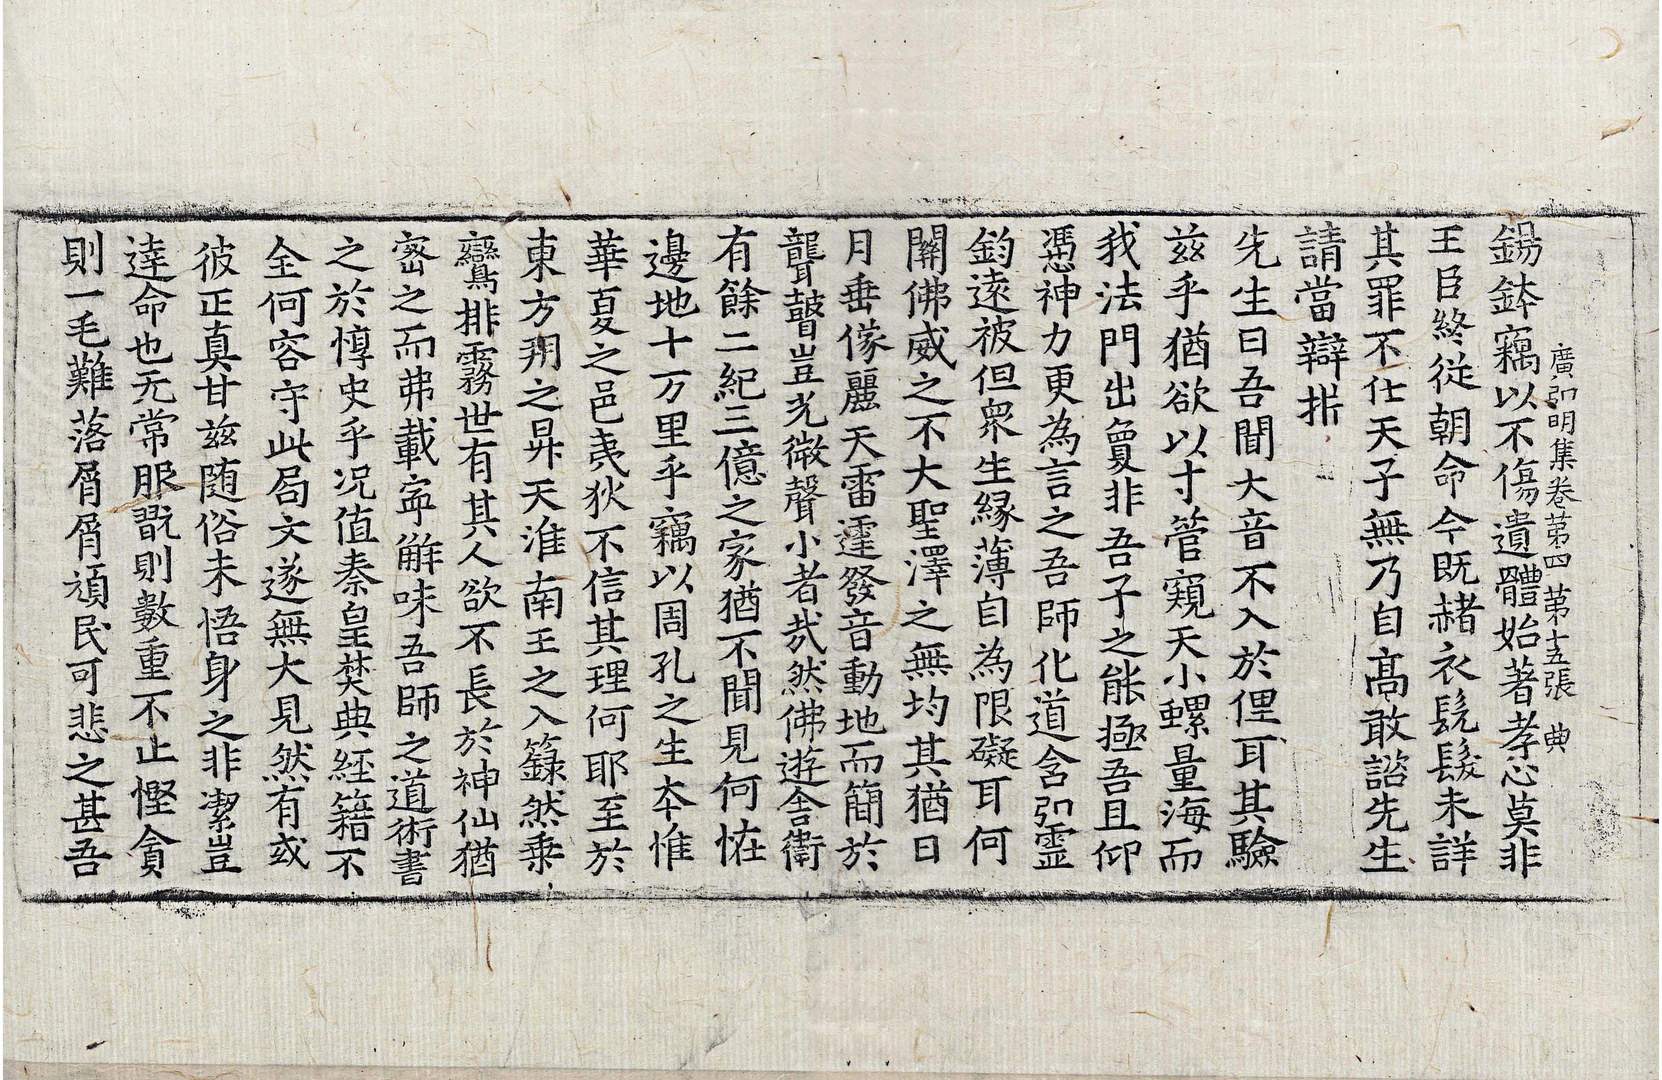 錫鉢竊以不傷遺體始著孝心莫非
廣弘明集卷第四 第十五張 典
王臣終從朝命今既赭衣髡髮未詳
其罪不仕天子無乃自高敢諮先生
請當辯拼
先生曰吾聞大音不入於俚耳其驗
茲乎猶欲以寸管窺天小螺量海而
我法門出敻非吾子之能極吾且仰
憑神力更為言之吾師化道含弘靈
鈞遠被但衆生緣薄自為限礙耳何
關佛威之不大聖澤之無均其猶日
月垂像麗天雷霆發音動地而簡於
聾瞽豈光微聲小者㢤然佛遊舍衛
有餘二紀三億之家猶不聞見何恠
邊地十万里乎竊以周孔之生夲惟
華夏之邑夷狄不信其理何耶至於
東方朔之昇天淮南王之入籙然乗
鸞排霧世有其人欲不長於神仙猶
密之而弗載寧解味吾師之道術書
之於惇史乎况值秦皇焚典經籍不
全何容守此局文遂無大見然有或
彼正真甘茲随俗未悟身之非潔豈
達命也无常服翫則數重不止慳貪
則一毛難落屑屑頑民可悲之甚吾